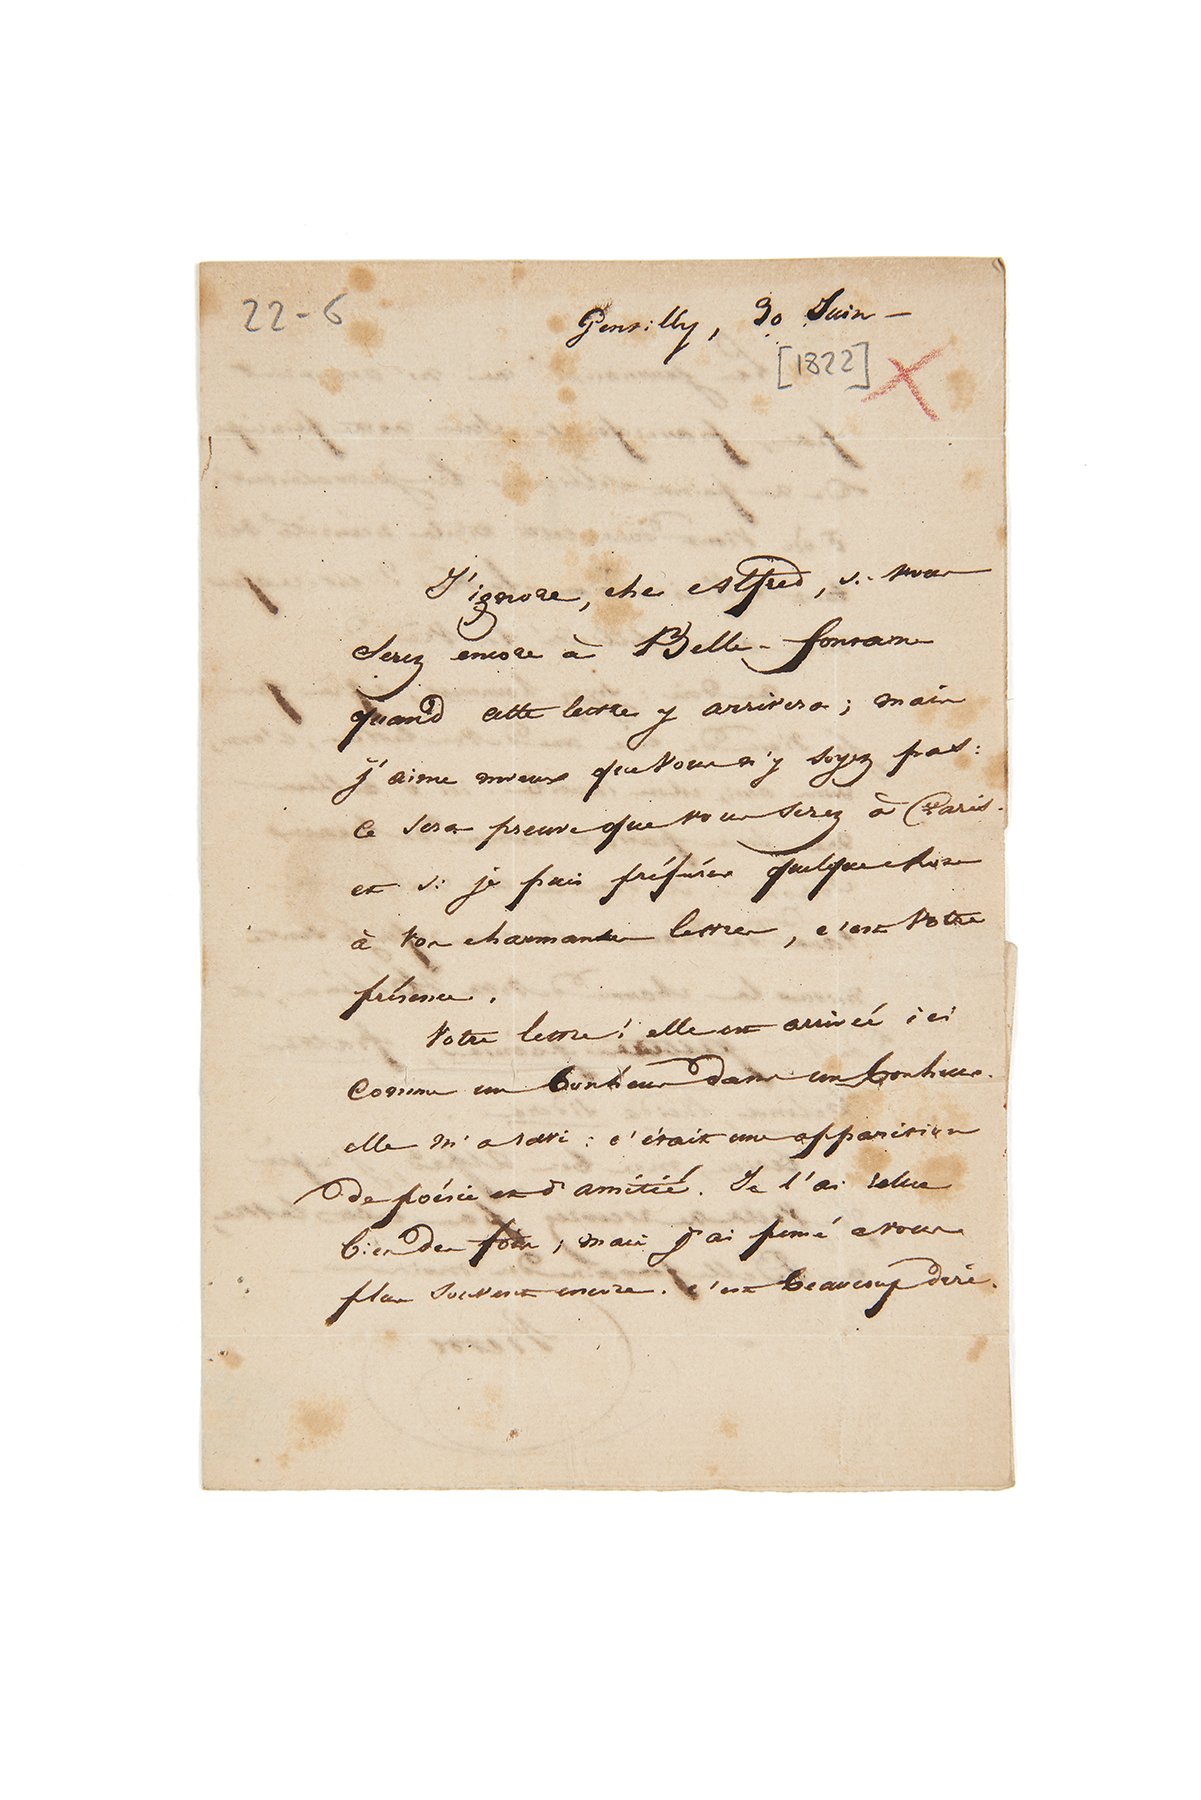 22-6
Gentilly, 30 Juin —
[1822]
J'ignore, cher Alfred, si vous
serez encore à Belle-fontaine
quand cette lettre y arrivera ; mais
j'aime mieux que vous n'y soyez pas :
ce sera preuve que vous serez à Paris.
et si je puis préférer quelque chose
à vos charmantes lettres, c'est votre
présence.
Votre lettre ! elle est arrivée ici
comme un bonheur dans un bonheur.
elle m'a ravi : c'était une apparition
de poésie et d'amitié. Je l'ai relue
bien des fois ; mais j'ai pensé à vous
plus souvent encore. c'est beaucoup dire.